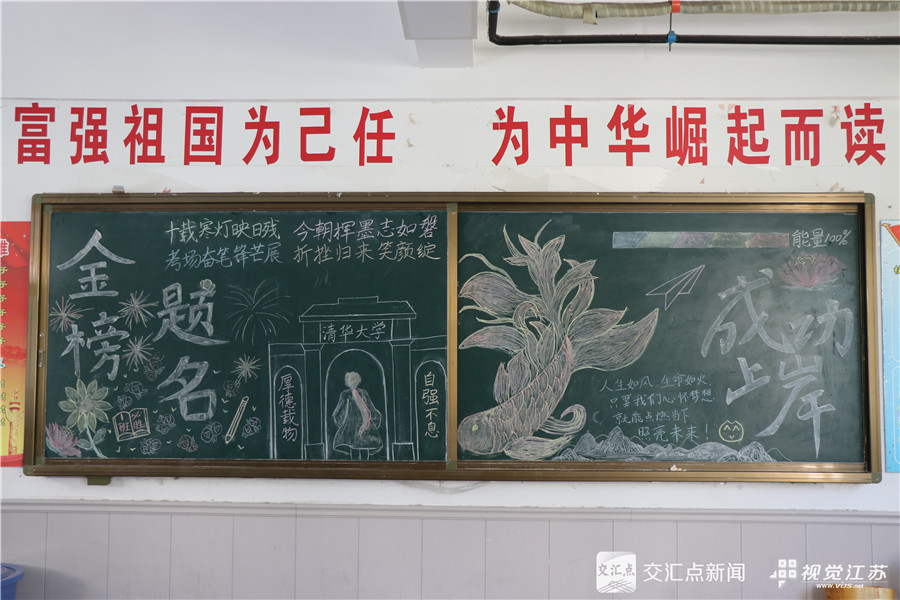 富强祖国为己任 为中华崛起而读
金榜
题名
十载寒灯映日残 今朝挥墨志如磐
考场奋笔锋芒展 折挫归来笑颜绽
清华大学
厚德载物
自强不息
能量100%
成功
上岸
人生如风,生命如火,
只要我们心怀梦想
就能点燃当下
照亮未来!
交汇点
交汇点新闻
视觉江苏
www.vijs.net